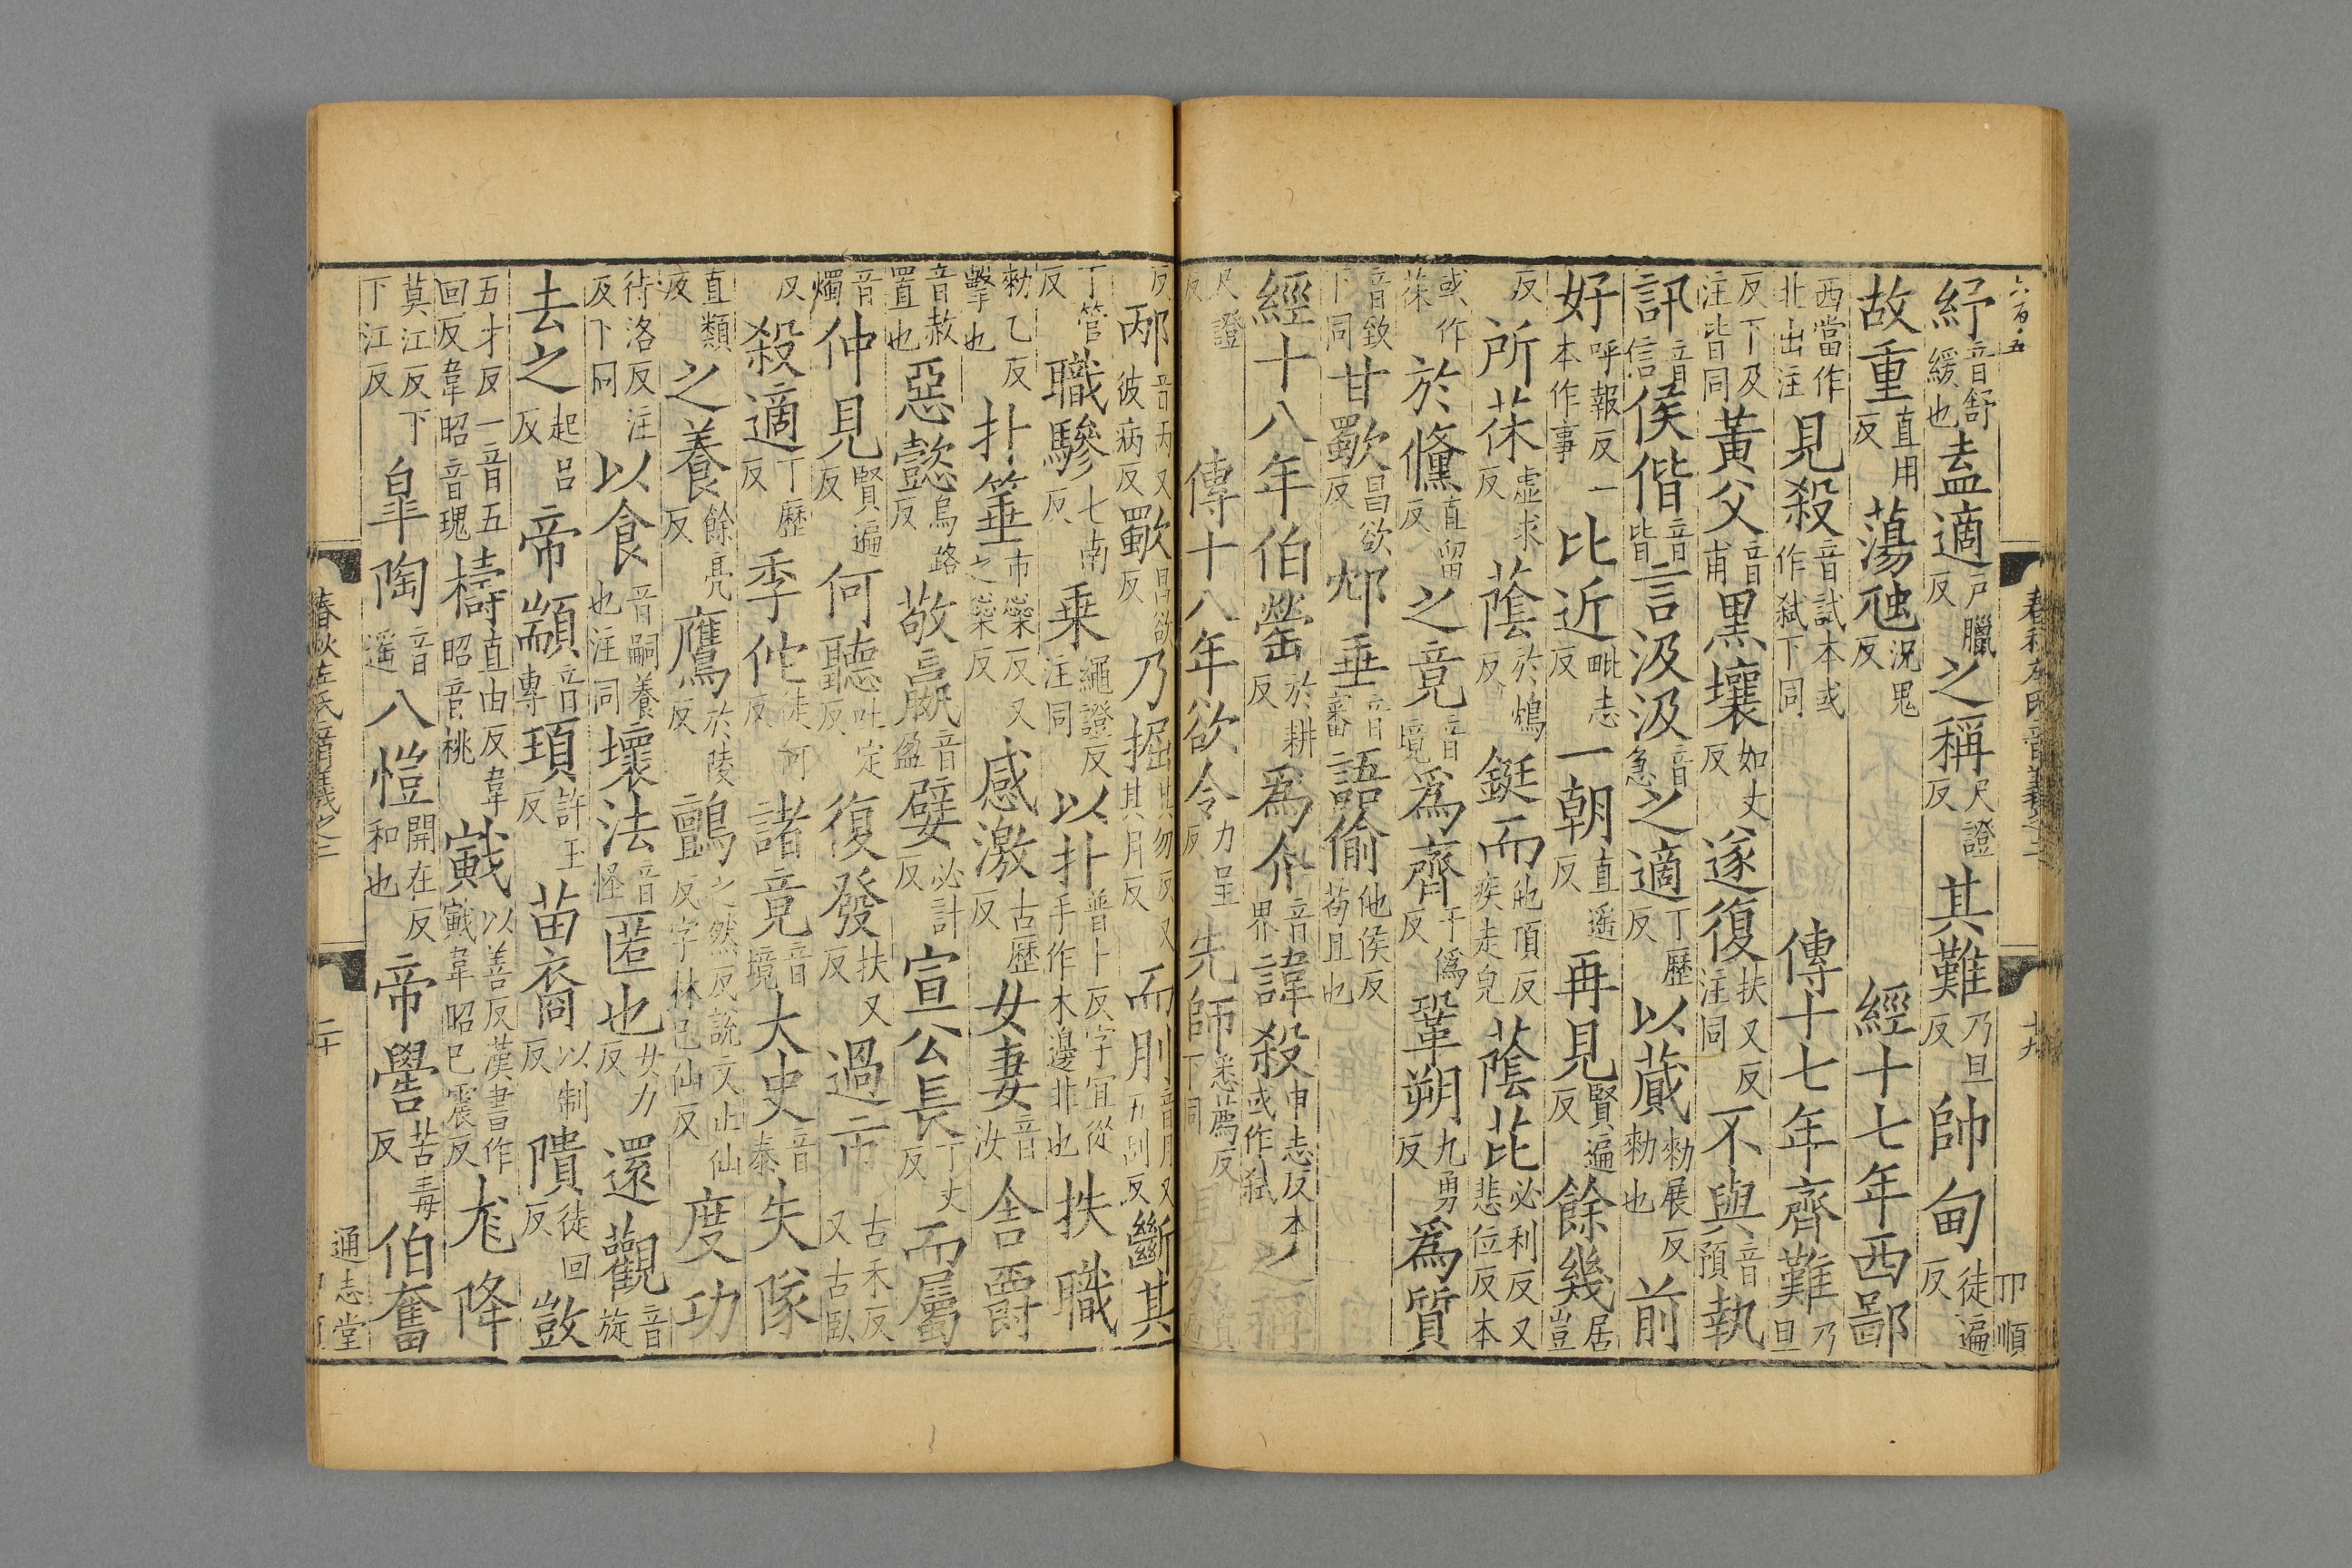 六百·五
紓音舒緩也盍適戸臘反之稱尺證反其難乃旦反帥甸徒遍反
故重直用反蕩虺況鬼反經十七年西鄙
西當作北出注見殺音試本或作弑下同傳十七年齊難乃旦
反下及注皆同黃父音甫黑壤如丈反遂復扶又反注同不與音預執
訊音信侯偕音皆言汲汲音急之適丁歷反以蕆勑展反勑也前
好呼報反一本作事比近毗志反一朝直遥反再見賢遍反餘幾居豈
反所茠虚求反蔭於鴆反鋌而他頂反疾走皃蔭茈必利反又悲位反本
或作茠於儵直留反之竟音境爲齊于僞反鞏朔九勇反爲質
音致下同甘歜昌欲反邥垂音審語偷他侯反苟且也
經十八年伯罃於耕反爲介音界諱殺申志反本或作弑
尺證反傳十八年欲令力呈反先師悉薦反下同
春秋左氏音義之二
十九
卭順
反邴音丙又彼病反歜昌欲反乃掘其勿反又其月反而刖音月又五刮反斷其
丁管反職驂七南反乗繩證反注同以扑普卜反字宜從手作木邊非也抶職
勑乙反擊也扑箠市蘂反又之蘂反感激古歷反女妻音汝舍爵
音赦置也惡懿烏路反敬嬴音盈嬖必計反宣公長丁丈反而屬
音燭仲見賢遍反何聽吐定反復發扶又反過市古禾反又古臥
反殺適丁歷反季佗徒何反諸竟音境大史音泰失隊
直類反之養餘亮反鷹於陵反鸇之然反説文止仙反字林己仙反度功
待洛反注及下同以食音嗣養也注同壞法音怪匿也女力反還觀音旋
去之起吕反帝顓音專頊許玉反苗裔以制反隤徒回反敳
五才反一音五回反韋昭音瑰檮直由反韋昭音桃戭以善反漢書作㦽韋昭已震反尨降
莫江反下下江反皐陶音遥八愷開在反和也帝嚳苦毒反伯奮
春秋左氏音義之二
二十
通志堂